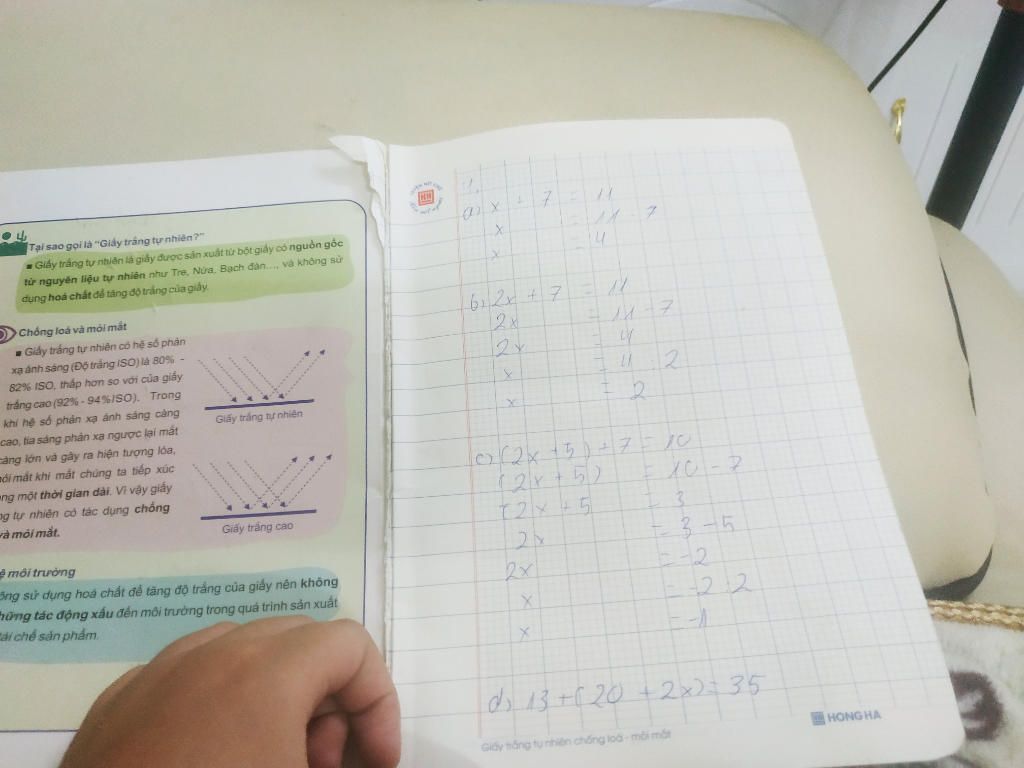 Tại sao gọi là "Giấy trắng tự nhiên?"
■ Giấy trắng tự nhiên là giấy được sản xuất từ bột giấy có nguồn gốc
từ nguyên liệu tự nhiên như Tre, Nứa, Bạch đàn..., và không sử
dụng hoá chất để tăng độ trắng của giấy.
Chống loá và mỏi mắt
■ Giấy trắng tự nhiên có hệ số phản
xạ ánh sáng (Độ trắng ISO) là 80% -
82% ISO, thấp hơn so với của giấy
trắng cao (92% - 94% ISO). Trong
khi hệ số phản xạ ánh sáng càng
cao, tia sáng phản xạ ngược lại mắt
càng lớn và gây ra hiện tượng lóa,
mỏi mắt khi mắt chúng ta tiếp xúc
ng một thời gian dài. Vì vậy giấy
ng tự nhiên có tác dụng chống
và mỏi mắt.
Giấy trắng tự nhiên
Giấy trắng cao
ệ môi trường
ông sử dụng hoá chất để tăng độ trắng của giấy nên không
hững tác động xấu đến môi trường trong quá trình sản xuất
tái chế sản phẩm.
1.
a) x + 7 = 11
x = 11 - 7
x = 4
b) 2x + 7 = 11
2x = 11 - 7
2x = 4
x = 4 : 2
x = 2
c) (2x + 5) + 7 = 10
(2x + 5) = 10 - 7
(2x + 5 = 3
2x = 3 - 5
2x = -2
x = -2 : 2
x = -1
d) 13 + (20 + 2x) = 35
HONG HA
Giấy trắng tự nhiên chống loá - mỏi mắt